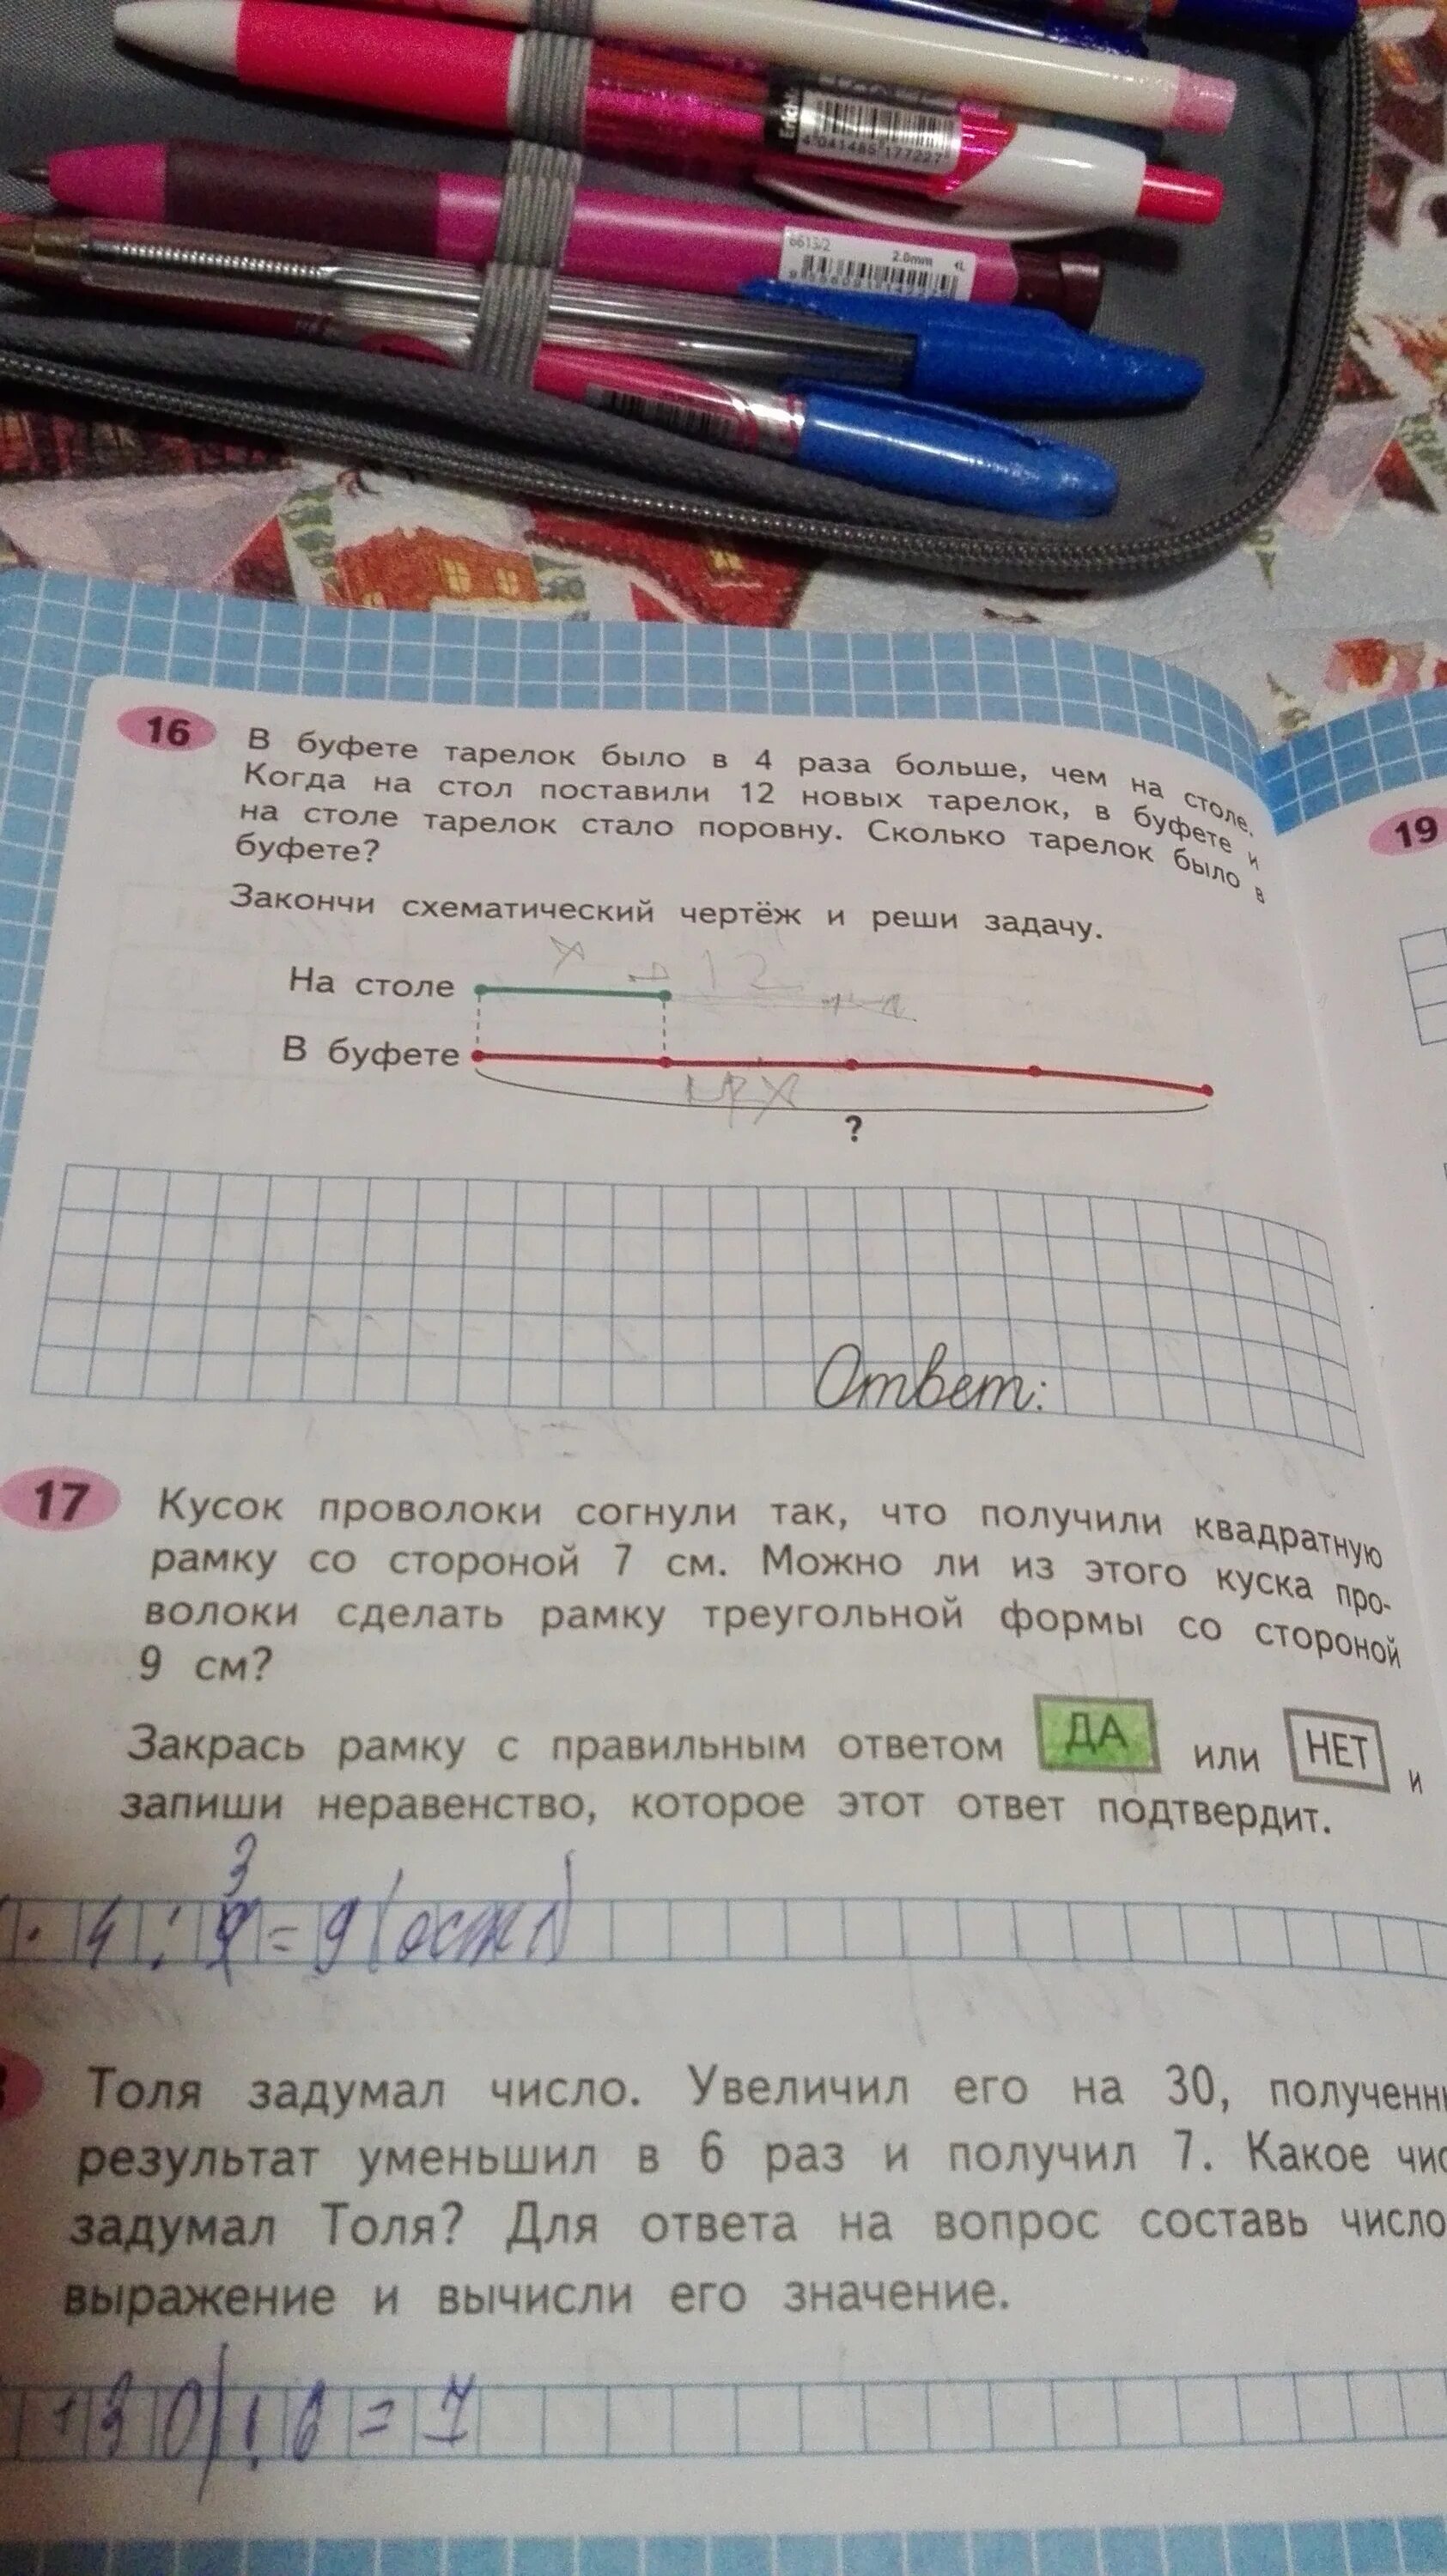 Erich
4 041485 177227
6613/2
2.0mm
16
В буфете тарелок было в 4 раза больше, чем на столе.
Когда на стол поставили 12 новых тарелок, в буфете и
на столе тарелок стало поровну. Сколько тарелок было в
буфете?
Закончи схематический чертёж и реши задачу.
x 12
На столе
В буфете
4x
?
Ответ:
17
Кусок проволоки согнули так, что получили квадратную
рамку со стороной 7 см. Можно ли из этого куска про-
волоки сделать рамку треугольной формы со стороной
9 см?
Закрась рамку с правильным ответом ДА или НЕТ и
запиши неравенство, которое этот ответ подтвердит.
3
· 4 : = 9 (ост 1)
Толя задумал число. Увеличил его на 30, полученн
результат уменьшил в 6 раз и получил 7. Какое чис
задумал Толя? Для ответа на вопрос составь число
выражение и вычисли его значение.
+30) : 6 = 7
19